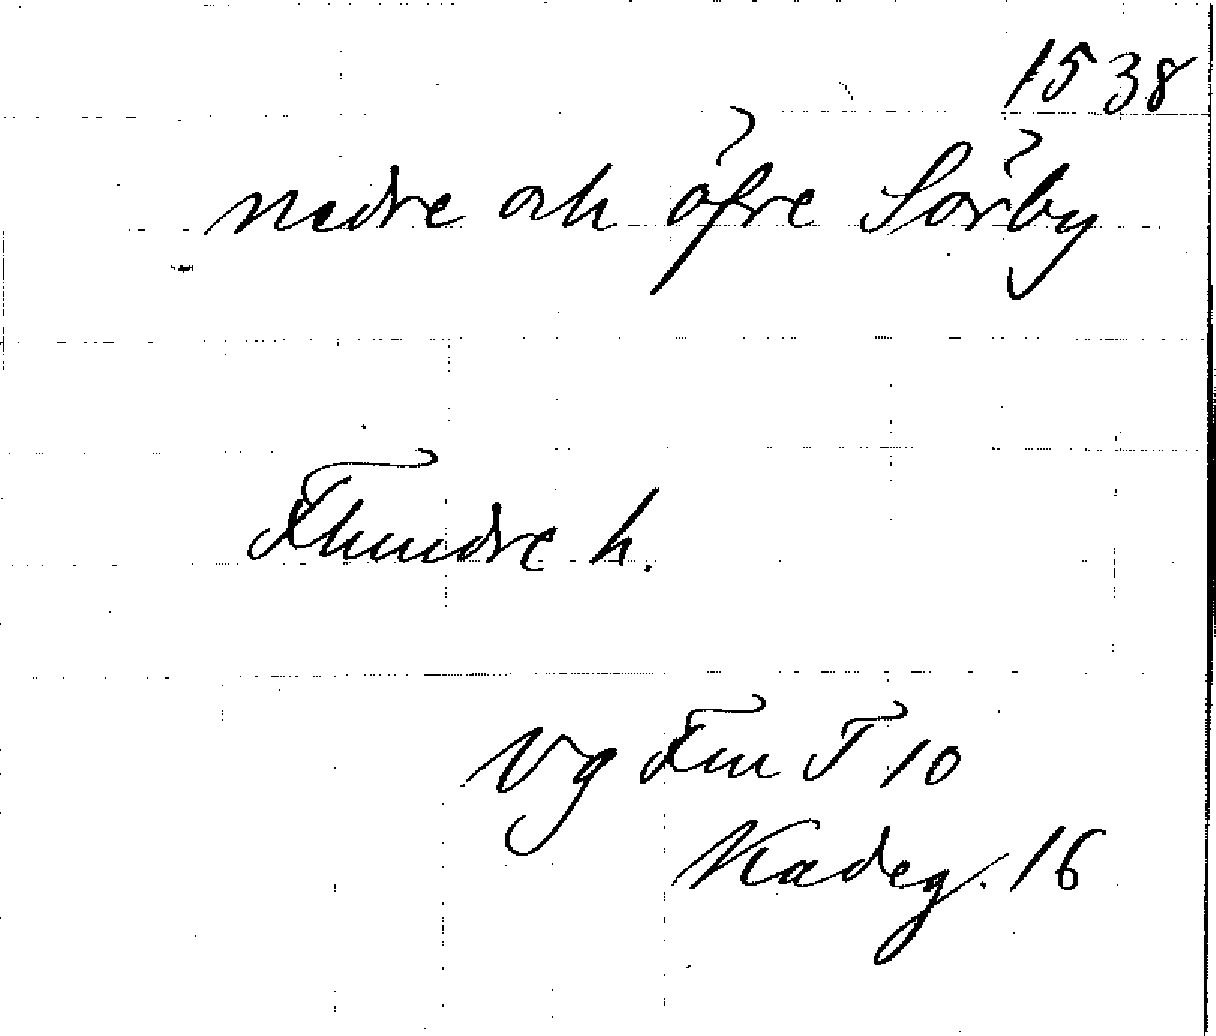 1538
nedre och öfre Sörby
Flundre h.
Vg Fru T 10
Kadeg. 16